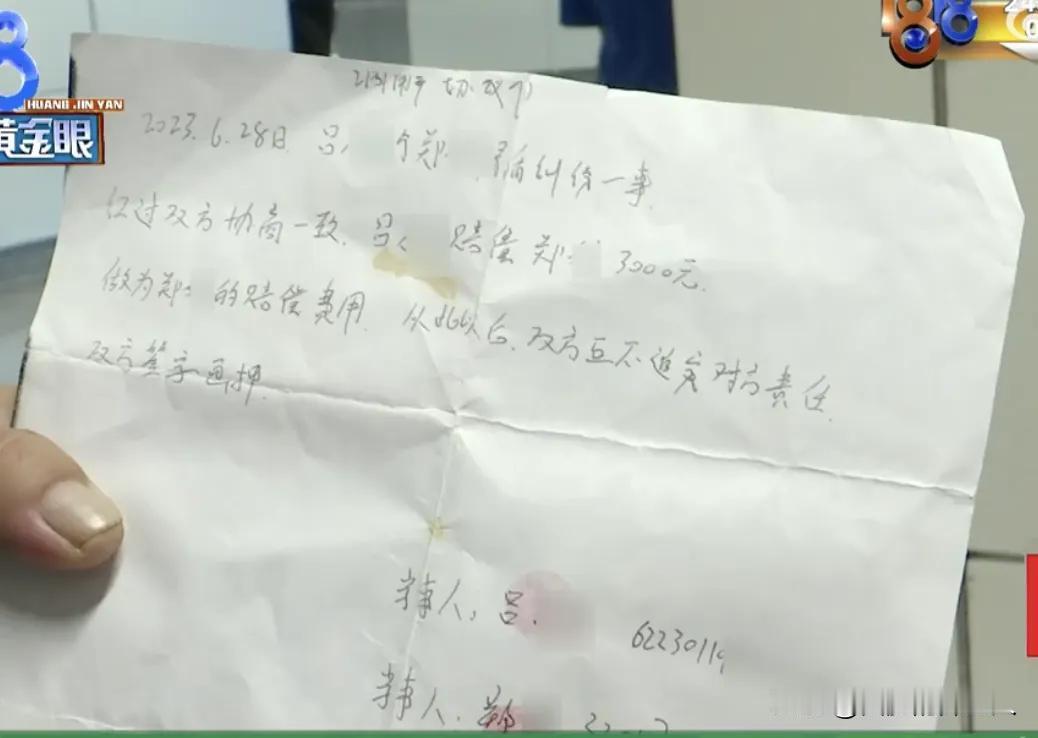 8
HUANG JIN YAN
黄金眼
188
协议
2023.6.28日 吕 个郑 纠纷一事
经过双方协商一致、吕 赔偿 郑 3000元.
做为郑 的赔偿费用. 从此以后、双方互不追究对方责任.
双方签字画押.
当事人: 吕
6223011
当事人. 郑